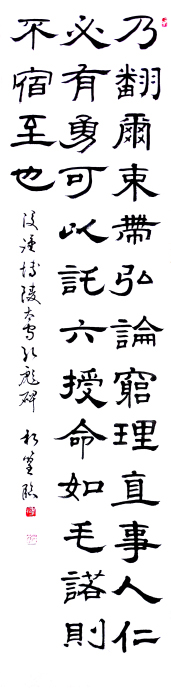 乃翻爾束帶弘論窮理直事人仁
必有勇可以託六授命如毛諾則
不宿至也
後漢博陵太守孔彪碑 臨